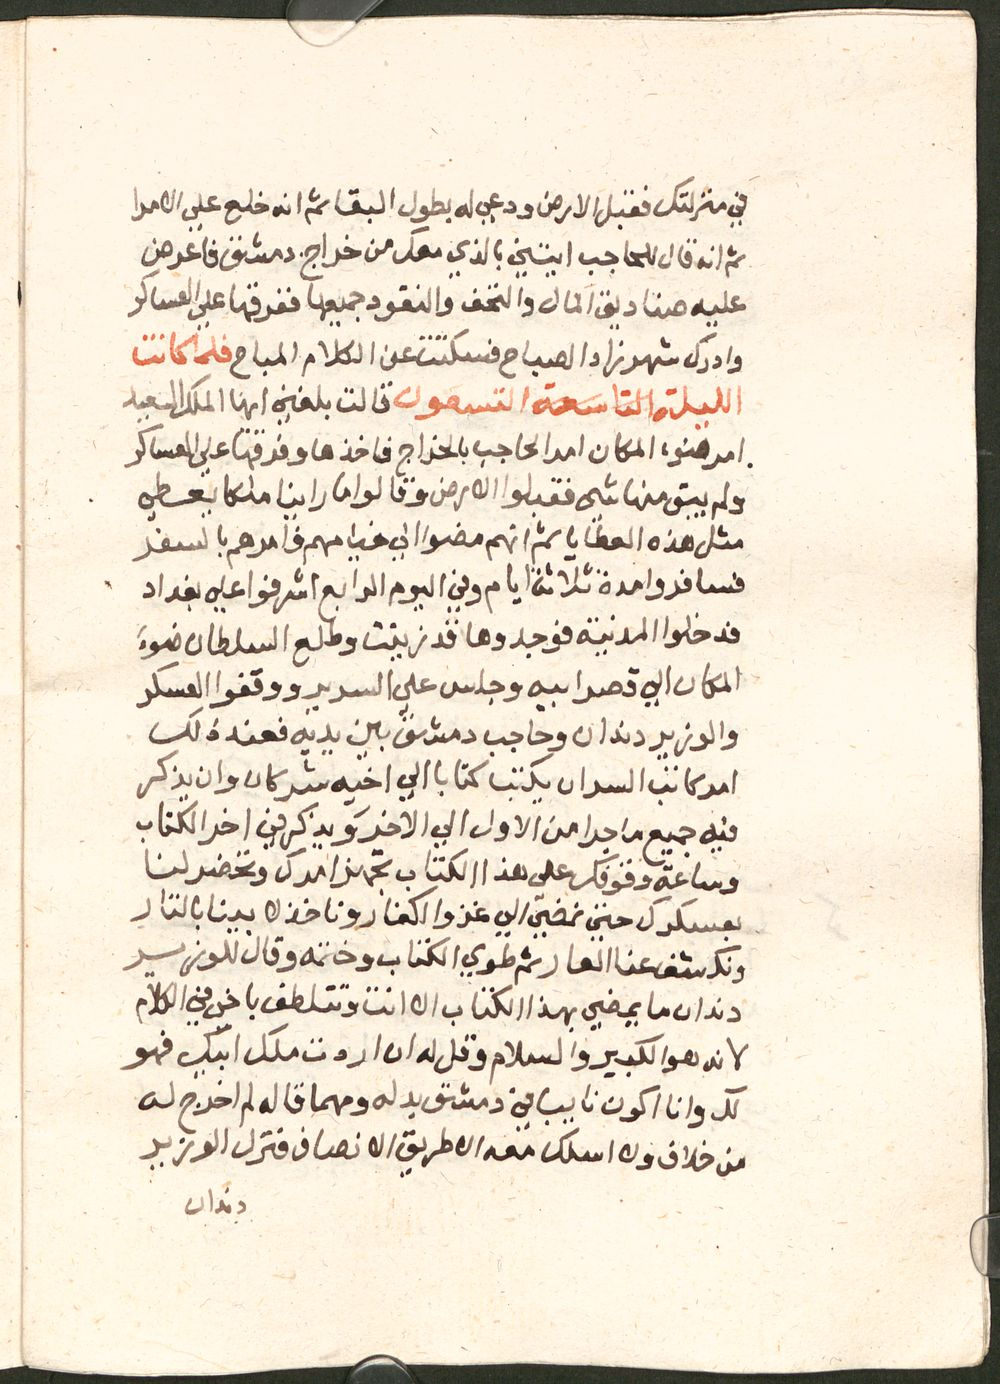 في منزلتك فقبل الارض ودعي له بطول البقا ثم انه خلع علي الامرا
ثم انه قال للحاجب ايتيني بالذي معك من خراج دمشق فاعرض
عليه صناديق المال والتحف والنقود جميعها ففرقها علي العساكر
وادرك شهرزاد الصباح فسكتت عن الكلام المباح فلما كانت
الليلة التاسعة التسعون قالت بلغني ايها الملك السعيد
امر ضوء المكان امر الحاجب بالخراج فاخذها وفرقها علي العساكر
ولم يبق منها شي فقبلوا الارض وقالوا ما راينا ملكا يعطي
مثل هذه العطايا ثم انهم مضوا الي خيامهم فامرهم بالسفر
فسافروا مدة ثلاثة ايام وفي اليوم الرابع اشرفوا علي بغداد
فدخلوا المدينة فوجدوها قد زينت وطلع السلطان ضوء
المكان الي قصر ابيه وجلس علي السرير ووقفوا العسكر
والوزير دندان وحاجب دمشق بين يديه فعند ذلك
امر كاتب السر ان يكتب كتابا الي اخيه شركان وان يذكر
فيه جميع ما جرا من الاول الي الاخر ويذكر في اخر الكتاب
وساعة وقوفك علي هذا الكتاب تجهز امرك وتحضر لنا
بعسكرك حتي نمضي الي غزو الكفار وناخذ لابينا بالتار
ونكشف عنا العار ثم طوي الكتاب وختمه وقال للوزير
دندان ما يمضي بهذا الكتاب الا انت وتتلطف باخي في الكلام
لانه هو الكبير والسلام وقل له ان اردت ملك ابيك فهو
لك وانا اكون نايبا في دمشق بدله ومهما قاله لم اخرج له
من خلاف ولا اسلك معه الا طريق الانصاف فنزل الوزير
دندان